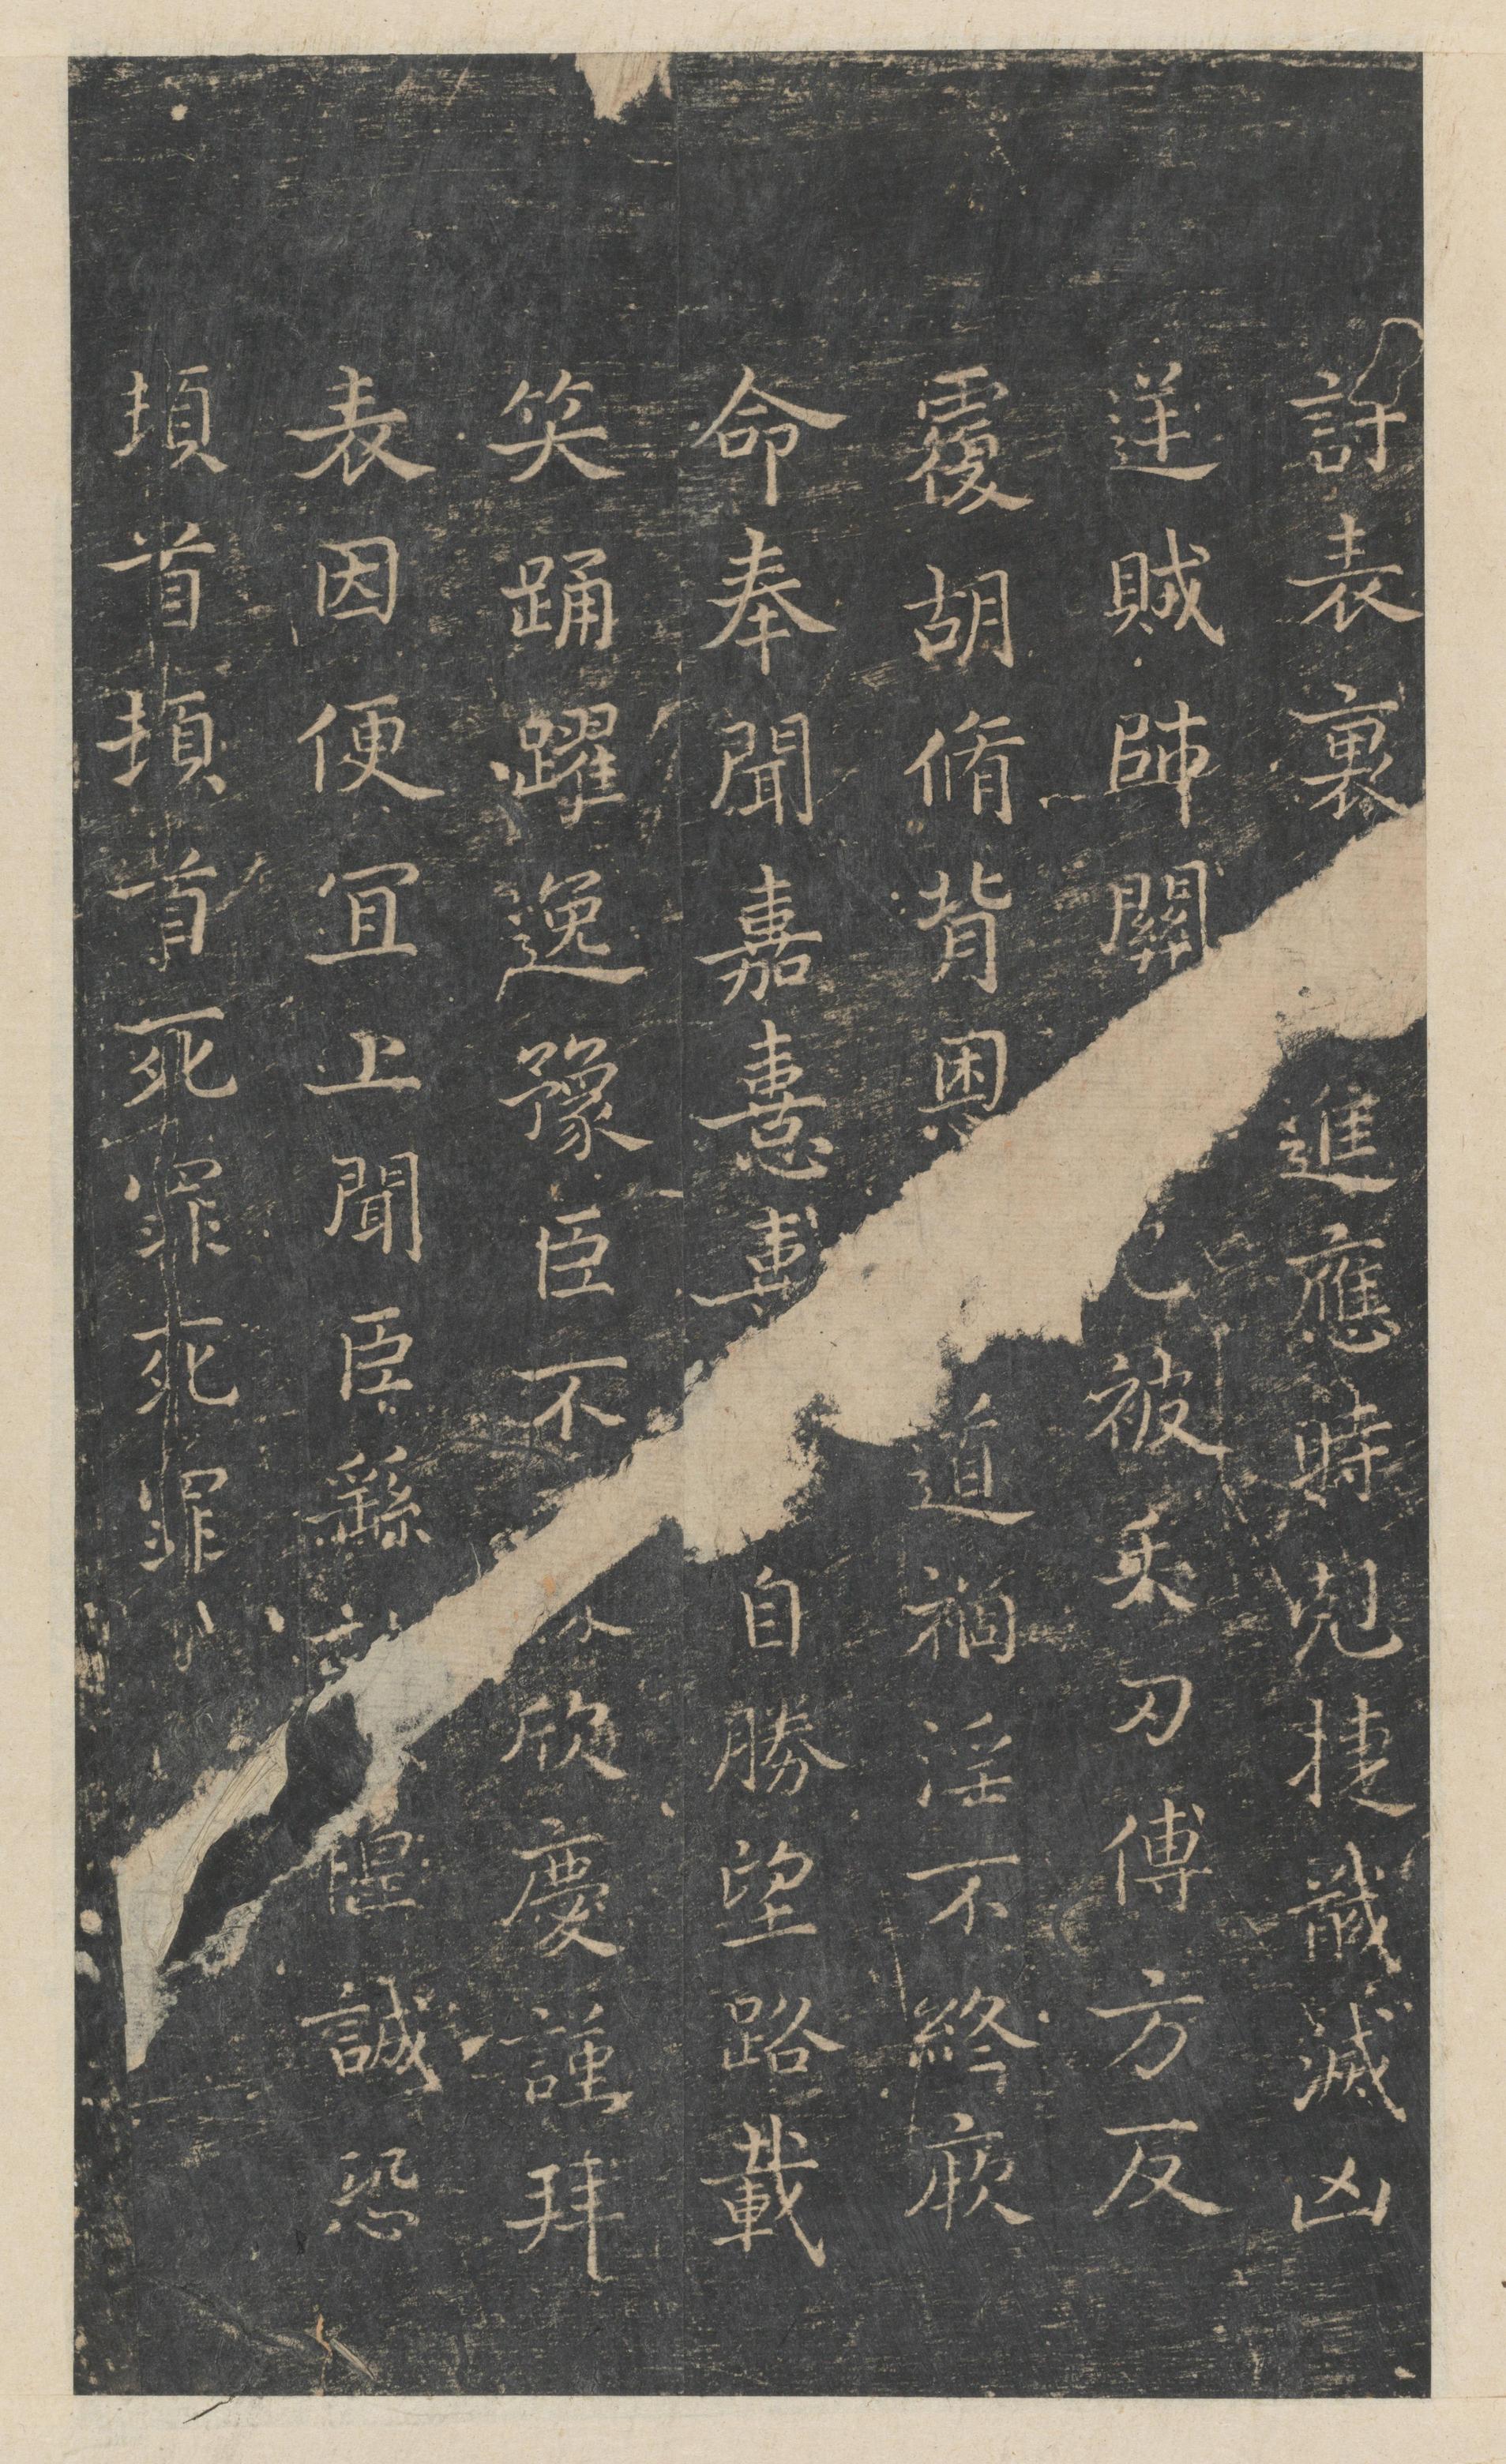 討表裏進應時剋捷馘滅凶
逆賊帥關已被矢刃傅方反
覆胡脩背恩道禍淫不終厥
命奉聞嘉憙喜自勝望路載
笑踊躍逸豫臣不欣慶謹拜
表因便宜上聞臣繇誠惶誠恐
頓首頓首死罪死罪